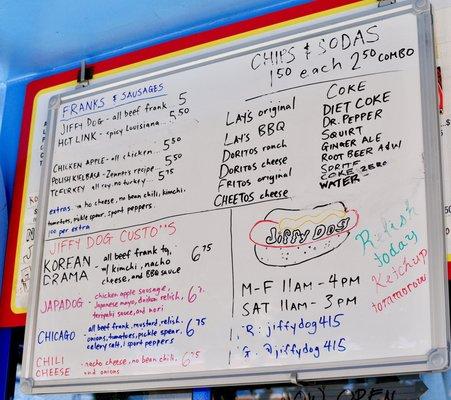 FRANKS & SAUSAGES
JIFFY DOG - all beef frank 5
HOT LINK - spicy Louisiana 5.50
CHICKEN APPLE - all chicken 5.50
POLISH KIELBASA - Zenner's recipe 5.50
TOFURKEY all soy, no turkey 5.75
extras: nacho cheese, no bean chili, kimchi,
tomatoes, pickle spear, sport peppers.
.00 per extra
JIFFY DOG CUSTO"S
KOREAN DRAMA - all beef frank tg, 6.75
w/ kimchi, nacho
cheese, and BBQ sauce
JAPADOG - chicken apple sausage,
Japanese mayo, daikon relish, 6.75
teriyaki sauce, and nori
CHICAGO - all beef frank, mustard, relish,
onions, tomatoes, pickle spear 6.75
celery salt, & sport peppers
CHILI CHEESE - nacho cheese, no bean chili, 6.25
and onions
CHIPS & SODAS
1.50 each 2.50 COMBO
LAY'S original
LAY'S BBQ
DORITOS ranch
DORITOS cheese
FRITOS original
CHEETOS cheese
COKE
DIET COKE
DR. PEPPER
SQUIRT
GINGER ALE
ROOT BEER A&W
SPRITE
COKE ZERO
WATER
Jiffy Dog
M-F 11AM - 4PM
SAT 11AM - 3PM
jiffydog415
@jiffydog415
Relish
today
Ketchup
tomorrow
OPEN